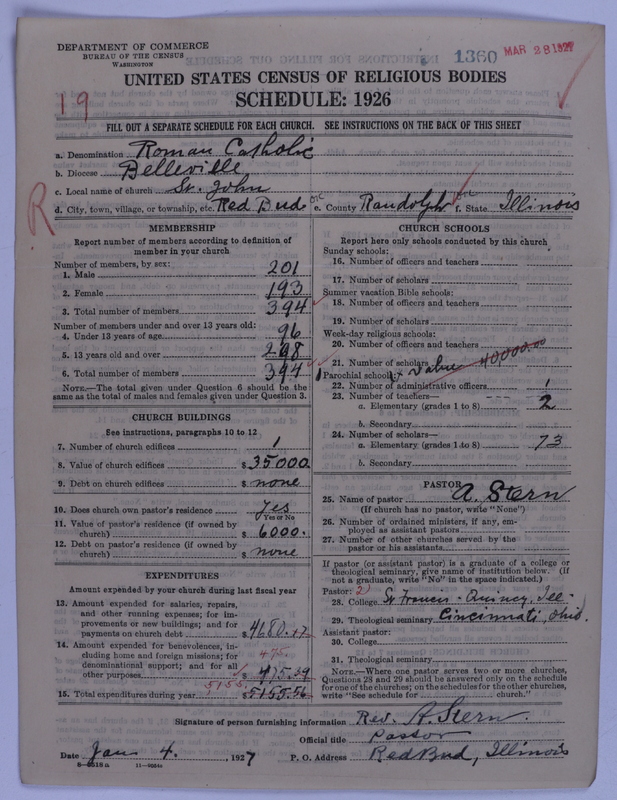 DEPARTMENT OF COMMERCE
BUREAU OF THE CENSUS
WASHINGTON
1360
MAR 28 1927
UNITED STATES CENSUS OF RELIGIOUS BODIES
SCHEDULE: 1926
19
FILL OUT A SEPARATE SCHEDULE FOR EACH CHURCH. SEE INSTRUCTIONS ON THE BACK OF THIS SHEET
a. Denomination Roman Catholic
b. Diocese Belleville
c. Local name of church St. John
d. City, town, village, or township, etc. Red Bud e. County Randolph f. State Illinois
R
MEMBERSHIP
Report number of members according to definition of
member in your church
Number of members, by sex:
1. Male 201
2. Female 193
3. Total number of members 394
Number of members under and over 13 years old:
4. Under 13 years of age 96
5. 13 years old and over 298
6. Total number of members 394
NOTE.—The total given under Question 6 should be the
same as the total of males and females given under Question 3.
CHURCH BUILDINGS
See instructions, paragraphs 10 to 12
7. Number of church edifices 1
8. Value of church edifices $35000.
9. Debt on church edifices $ none
10. Does church own pastor's residence yes
Yes or No
11. Value of pastor's residence (if owned by
church) $ 6000.
12. Debt on pastor's residence (if owned by
church) $ none
EXPENDITURES
Amount expended by your church during last fiscal year
13. Amount expended for salaries, repairs,
and other running expenses; for im-
provements or new buildings; and for
payments on church debt $4680.17
14. Amount expended for benevolences, in-
cluding home and foreign missions; for
denominational support; and for all
other purposes 475. $ 475.39
15. Total expenditures during year 5155 $5155.56
CHURCH SCHOOLS
Report here only schools conducted by this church
Sunday schools:
16. Number of officers and teachers
17. Number of scholars
Summer vacation Bible schools:
18. Number of officers and teachers
19. Number of scholars
Week-day religious schools:
20. Number of officers and teachers
21. Number of scholars
Value 40,000.00
Parochial schools:
22. Number of administrative officers 1
23. Number of teachers—
a. Elementary (grades 1 to 8) 2
b. Secondary
24. Number of scholars—
a. Elementary (grades 1 to 8) 73
b. Secondary
PASTOR
25. Name of pastor A. Stern
(If church has no pastor, write "None")
26. Number of ordained ministers, if any, em-
ployed as assistant pastors
27. Number of other churches served by the
pastor or his assistants
If pastor (or assistant pastor) is a graduate of a college or
theological seminary, give name of institution below. (If
not a graduate, write "No" in the space indicated.)
Pastor: 2)
28. College St Francis - Quincy, Ill-
29. Theological seminary Cincinnati, Ohio.
Assistant pastor:
30. College
31. Theological seminary
NOTE.—Where one pastor serves two or more churches,
Questions 28 and 29 should be answered only on the schedule
for one of the churches; on the schedules for the other churches,
write "See schedule for church."
Signature of person furnishing information Rev. A. Stern.
Official title Pastor
Date Jan 4. , 1927 P. O. Address Red Bud, Illinois
8-5518a 11-9564a